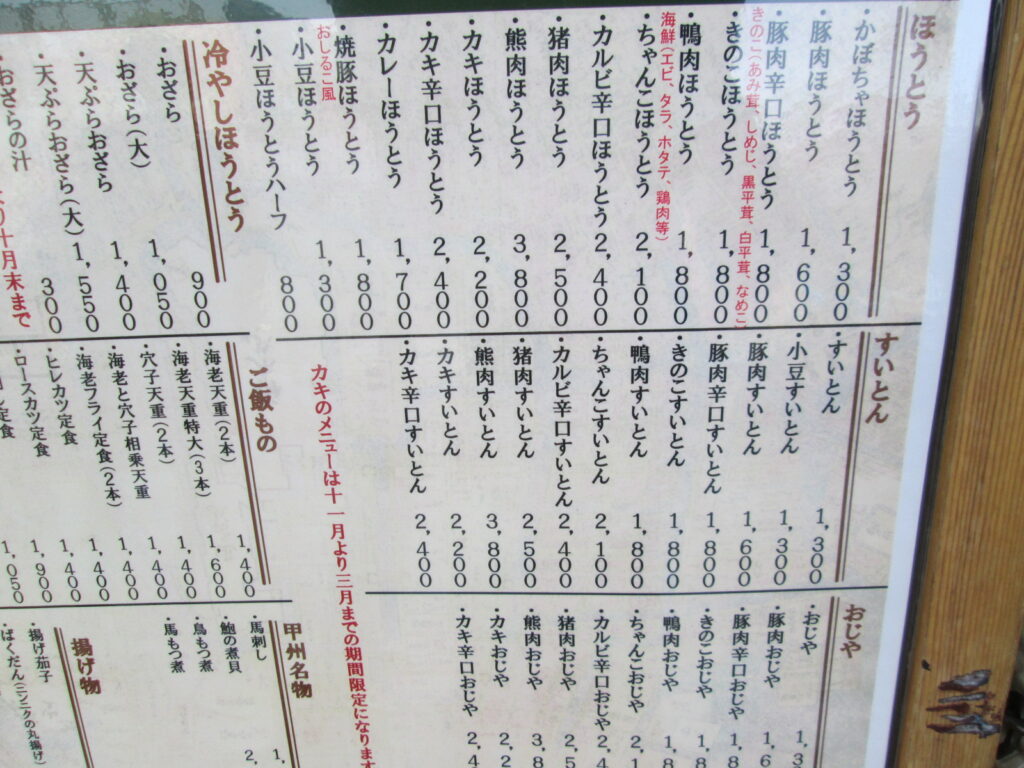 ほうとう
・かぼちゃほうとう 1,300
・豚肉ほうとう 1,600
・豚肉辛口ほうとう 1,800
きのこ(あみ茸、しめじ、黒平茸、白平茸、なめこ
・きのこほうとう 1,800
・鴨肉ほうとう 1,800
海鮮(エビ、タラ、ホタテ、鶏肉等)
・ちゃんこほうとう 2,100
・カルビ辛口ほうとう 2,400
・猪肉ほうとう 2,500
・熊肉ほうとう 3,800
・カキほうとう 2,200
・カキ辛口ほうとう 2,400
・カレーほうとう 1,700
・焼豚ほうとう 1,800
おしるこ風
・小豆ほうとう 1,300
・小豆ほうとうハーフ 800
冷やしほうとう
・おざら 900
・おざら(大) 1,050
・天ぷらおざら 1,400
・天ぷらおざら(大) 1,550
おざらの汁 300
より十月末まで
すいとん
・すいとん 1,300
・小豆すいとん 1,300
・豚肉すいとん 1,600
・豚肉辛口すいとん 1,800
・きのこすいとん 1,800
・鴨肉すいとん 1,800
・ちゃんこすいとん 2,100
・カルビ辛口すいとん 2,400
・猪肉すいとん 2,500
・熊肉すいとん 3,800
・カキすいとん 2,200
・カキ辛口すいとん 2,400
カキのメニューは十一月より三月までの期間限定になります
ご飯もの
・海老天重(2本) 1,400
・海老天重特大(3本) 1,600
・穴子天重(2本) 1,400
・海老と穴子相乗天重 1,400
・海老フライ定食(2本) 1,400
・ヒレカツ定食 1,400
・ロースカツ定食 1,900
定食 1,050
おじや
・おじや 1,3
・豚肉おじや 1,6
・豚肉辛口おじや 1,8
・きのこおじや 1,8
・鴨肉おじや 1,8
・ちゃんこおじや 2,1
・カルビ辛口おじや 2,4
・猪肉おじや 2,5
・熊肉おじや 3,8
・カキおじや 2,2
・カキ辛口おじや 2,4
甲州名物
・馬刺し 1,
・鮑の煮貝 2,
・鳥もつ煮
・馬もつ煮
揚げ物
・揚げ茄子
・ばくだん(ニンニクの丸揚げ)